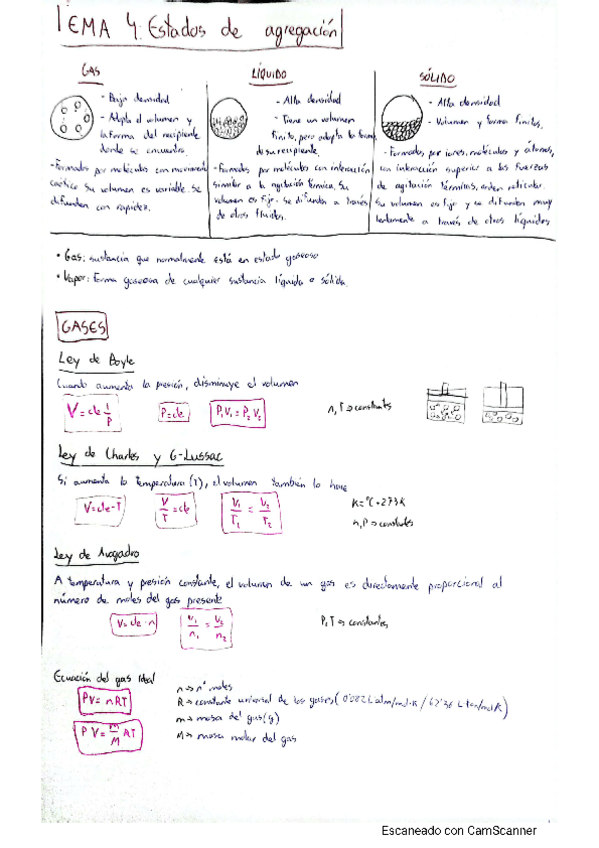 TEMA 4: Estados de agregación
GAS
- Baja densidad
- Adopta el volumen y
la forma del recipiente
donde se encuentra.
- Formados por moléculas con movimiento
caótico. Su volumen es variable. Se
difunden con rapidez.
LÍQUIDO
- Alta densidad
- Tiene un volumen
finito, pero adopta la forma
de su recipiente.
- Formados por moléculas con interacción
similar a la agitación térmica. Su
volumen es fijo. Se difunden a través
de otros fluidos.
SÓLIDO
- Alta densidad
- Volumen y forma finitos.
- Formados por iones, moléculas y átomos,
con interacción superior a las fuerzas
de agitación térmicas, orden reticular.
Su volumen es fijo y se difunden muy
lentamente a través de otros líquidos
• Gas: sustancia que normalmente está en estado gaseoso
• Vapor: forma gaseosa de cualquier sustancia líquida o sólida.
GASES
Ley de Boyle
Cuando aumenta la presión, disminuye el volumen
V = cte 1/P
P = cte
P₁V₁ = P₂V₂
n, T → constantes
Ley de Charles y G-Lussac
Si aumenta la temperatura (T), el volumen también lo hace
V = cte · T
V/T = cte
V₁/T₁ = V₂/T₂
K = °C + 273K
n, P → constantes
Ley de Avogadro
A temperatura y presión constante, el volumen de un gas es directamente proporcional al
número de moles del gas presente
V = cte · n
V₁/n₁ = V₂/n₂
P, T → constantes
Ecuación del gas ideal
PV = nRT
PV = m/M RT
n → n° moles
R → constante universal de los gases (0'082 L atm/mol·K /
m → masa del gas (g)
M → masa molar del gas
Escaneado con CamScanner